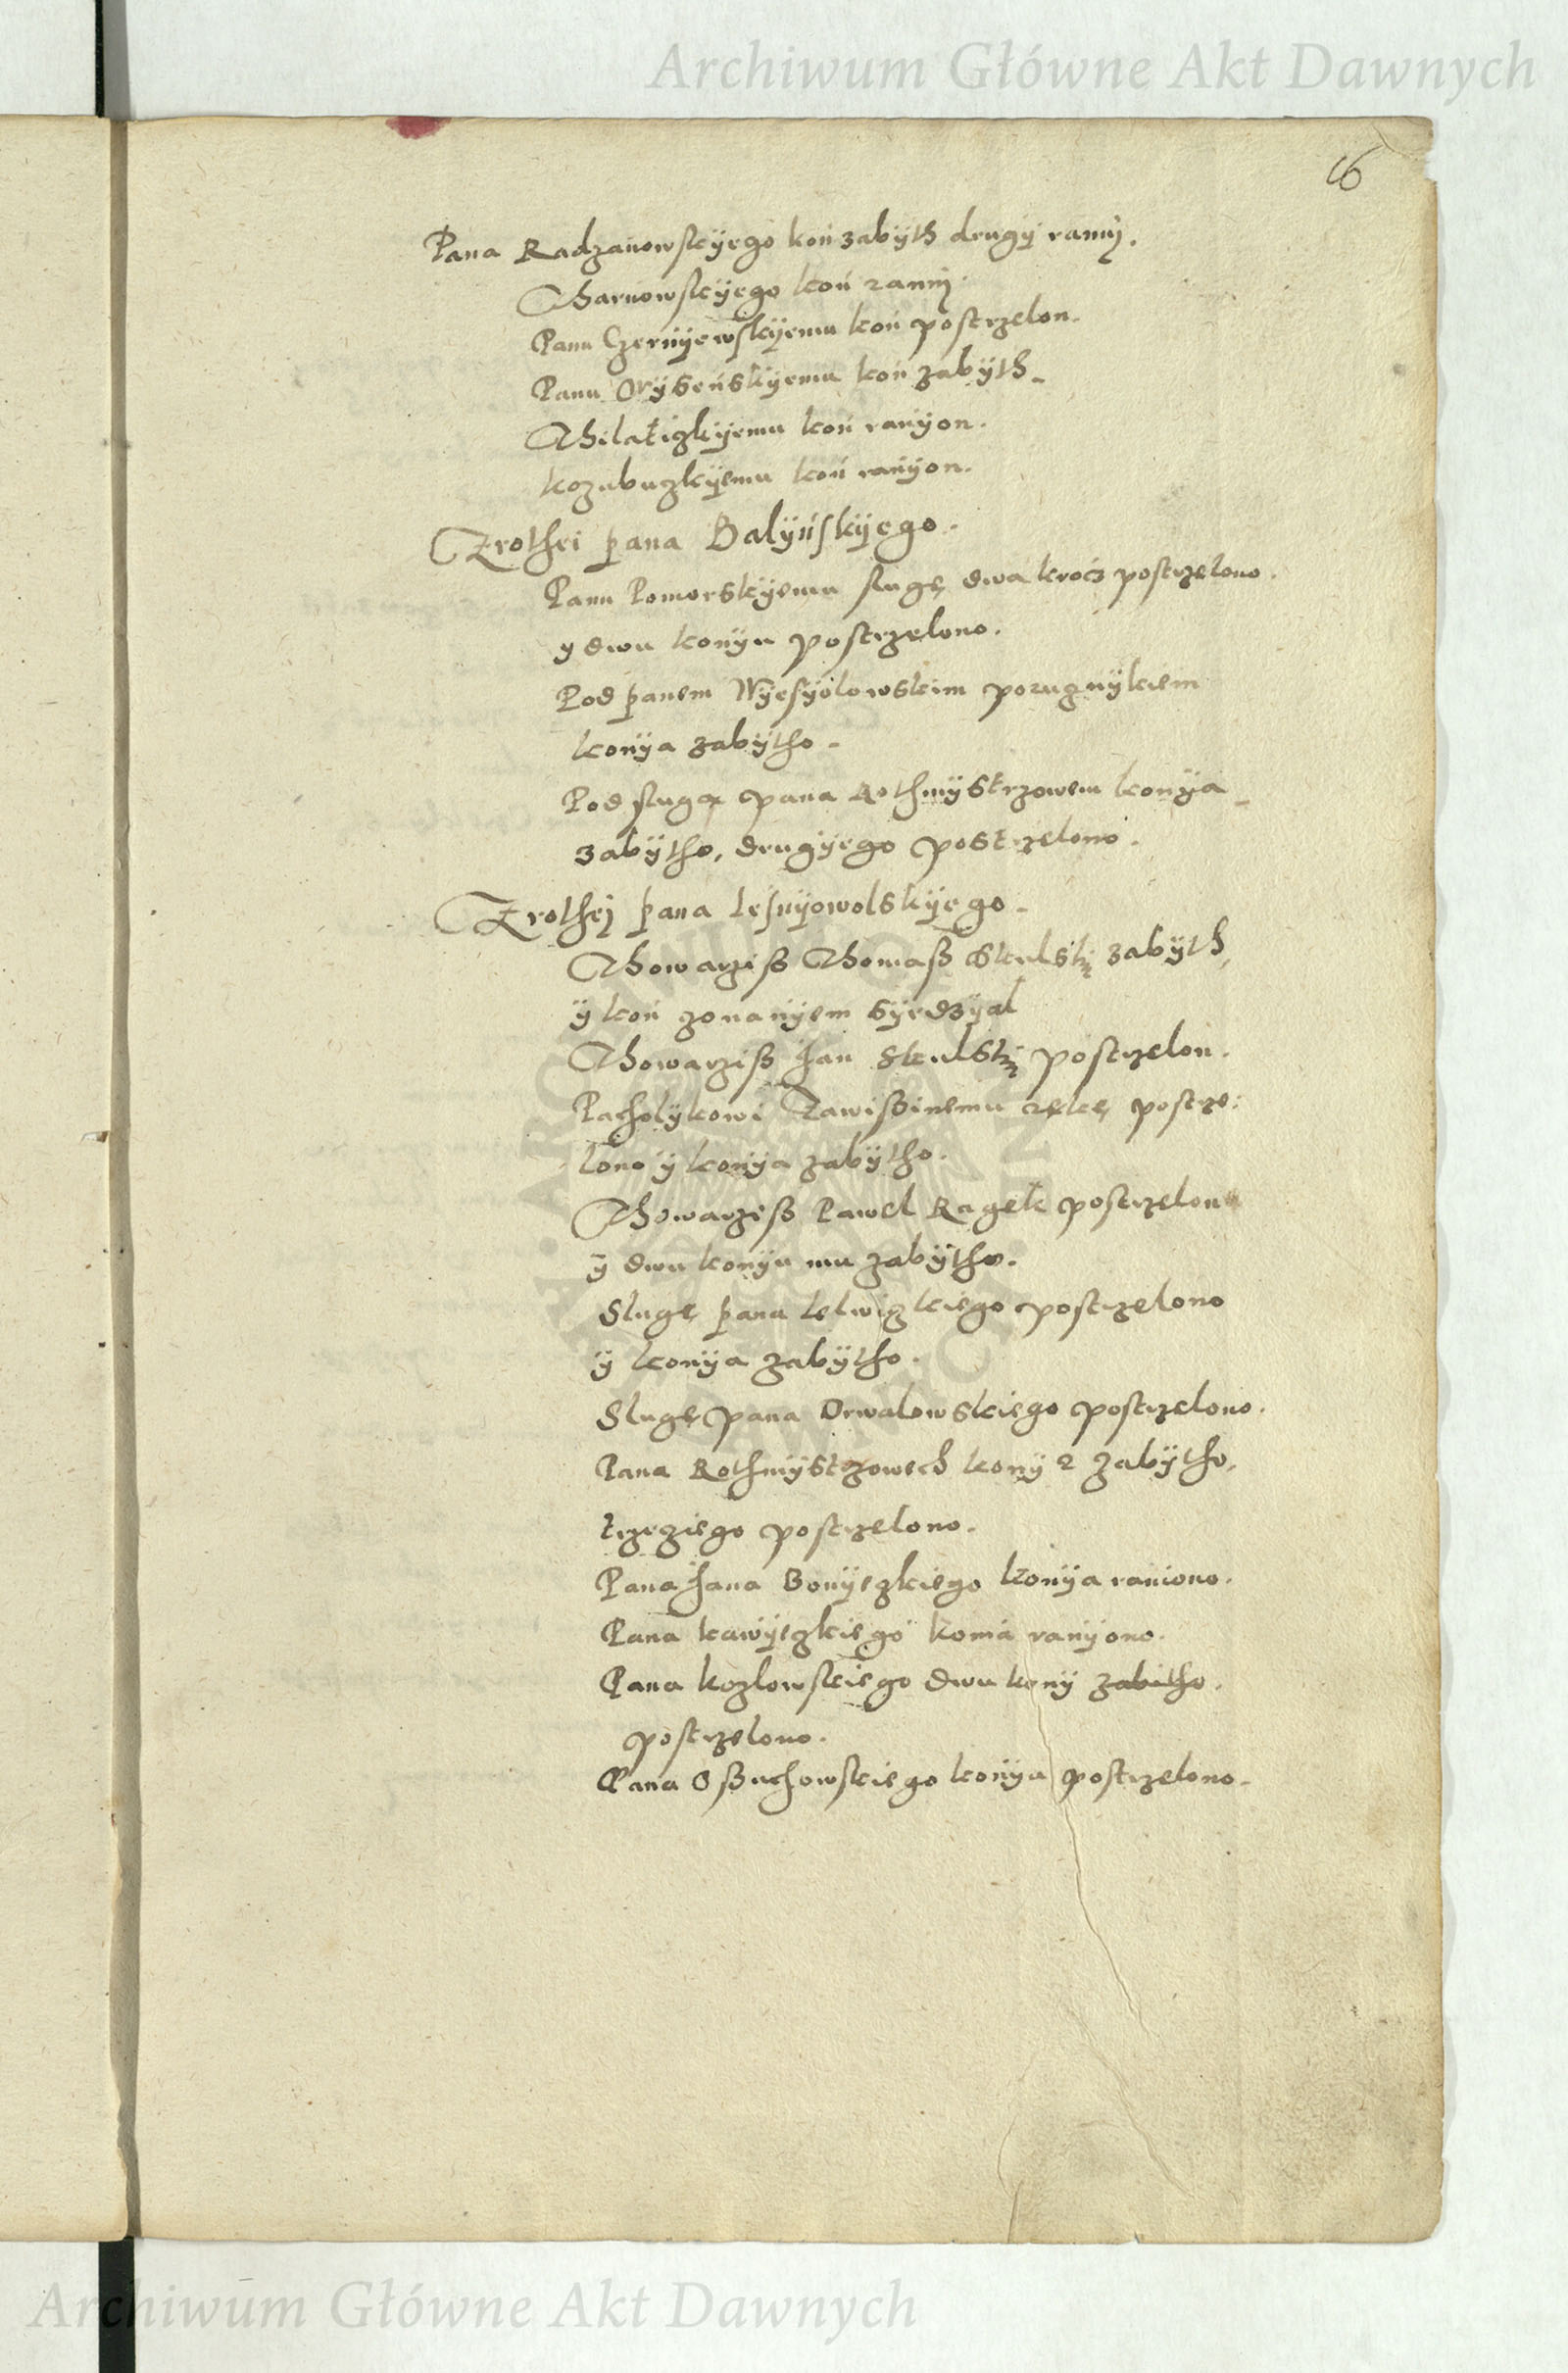 Archiwum Główne Akt Dawnych
16
Pana Radzanowskyego koń zabyth drugy ranny.
Tharnowskyego koń ranny.
Panu Czernyewskyemu koń postrzelon.
Panu Oryseńskyemu koń zabyth
koń ranyon.
Kozubuzkyemu koń ranyon.
Z rothei pana Balyńskyego.
Panu Pomorskyemu slugę dwa krocz postrzelono.
y dwu konyu postrzelono.
Pod panem Wyesyolowskim porucznykiem
konya zabytho
Pod slugą pana Rothmystrzowem konya
zabytho, drugyego postrzelono.
Z rothej pana Lesnyowolskyego
Thowarzisz Thomasz Skulsky zabyth,
y koń zonanyem
Thowarzisz Jan Skulsky postrzelon.
Pacholykowi Zawiszinemu rękę postrze:
lono y konya zabytho.
Thowarzisz Pawel Ragek postrzelon
y dwu konyu mu zabytho.
Slugę pana Lelwizkiego postrzelono
y konya zabytho.
Slugę pana Orwalowskiego postrzelono.
Pana Rothmystrzowech kony 2 zabytho,
trzeziego postrzelono.
Pana Jana Bonyezkiego konya raniono.
Pana Kawyezkiego konia ranyono.
Pana Kozlowskiego dwu kony zabitho.
postrzelono.
Pana Oszuchowskiego konya postrzelono.
Archiwum Główne Akt Dawnych